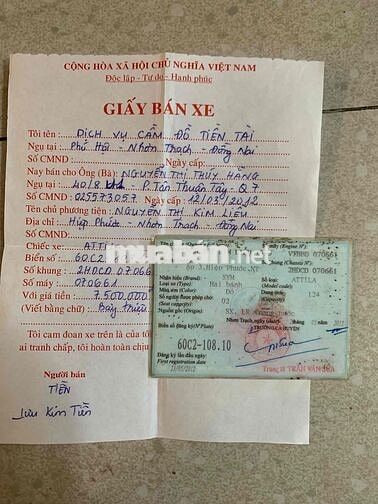 CỘNG HÒA XÃ HỘI CHỦ NGHĨA VIỆT NAM
Độc lập - Tự do - Hạnh phúc
GIẤY BÁN XE
Tôi tên : DỊCH VỤ CẦM ĐỒ TIỀN TÀI
Ngụ tại : Phú Hội - Nhơn Trạch - Đồng Nai
Số CMND : Ngày cấp:
Nay bán cho Ông (Bà): NGUYỄN THỊ THÚY HẰNG
Ngụ tại : 40/8 P. Tân Thuận Tây - Q7
Số CMND : 025573057 Ngày cấp: 12/03/2012
Tên chủ phương tiện: NGUYỄN THỊ KIM LIÊU
Địa chỉ : Hiệp Phước - Nhơn Trạch - Đồng Nai
Chiếc xe: ATTILA
Biển số : 60C2
Số khung : 2HDCD 070661
Số máy : 070661
Với giá tiền : 7.500.000
(Viết bằng chữ) Bảy triệu
Tôi cam đoan xe trên là của tôi
ai tranh chấp, tôi hoàn toàn chịu
Người bán
TIỀN
Lưu Kim Tiền
muaban.net
(Engine N°)
070661
60 J.Hiệp Phước.NT
(Chassis N°)
2HDCD 070661
Nhãn hiệu (Brand) SYM
ATTILA
Loại xe (Type) Hai bánh
(Model code)
Màu sơn (Color) Đỏ
124
Số người được phép chở 02
Nguồn gốc (Origin)
Biển số đăng ký (N° Plate)
60C2-108.10
Đăng ký lần đầu ngày
First registration date
21/05/2012
Trung tá TRẦN VĂN